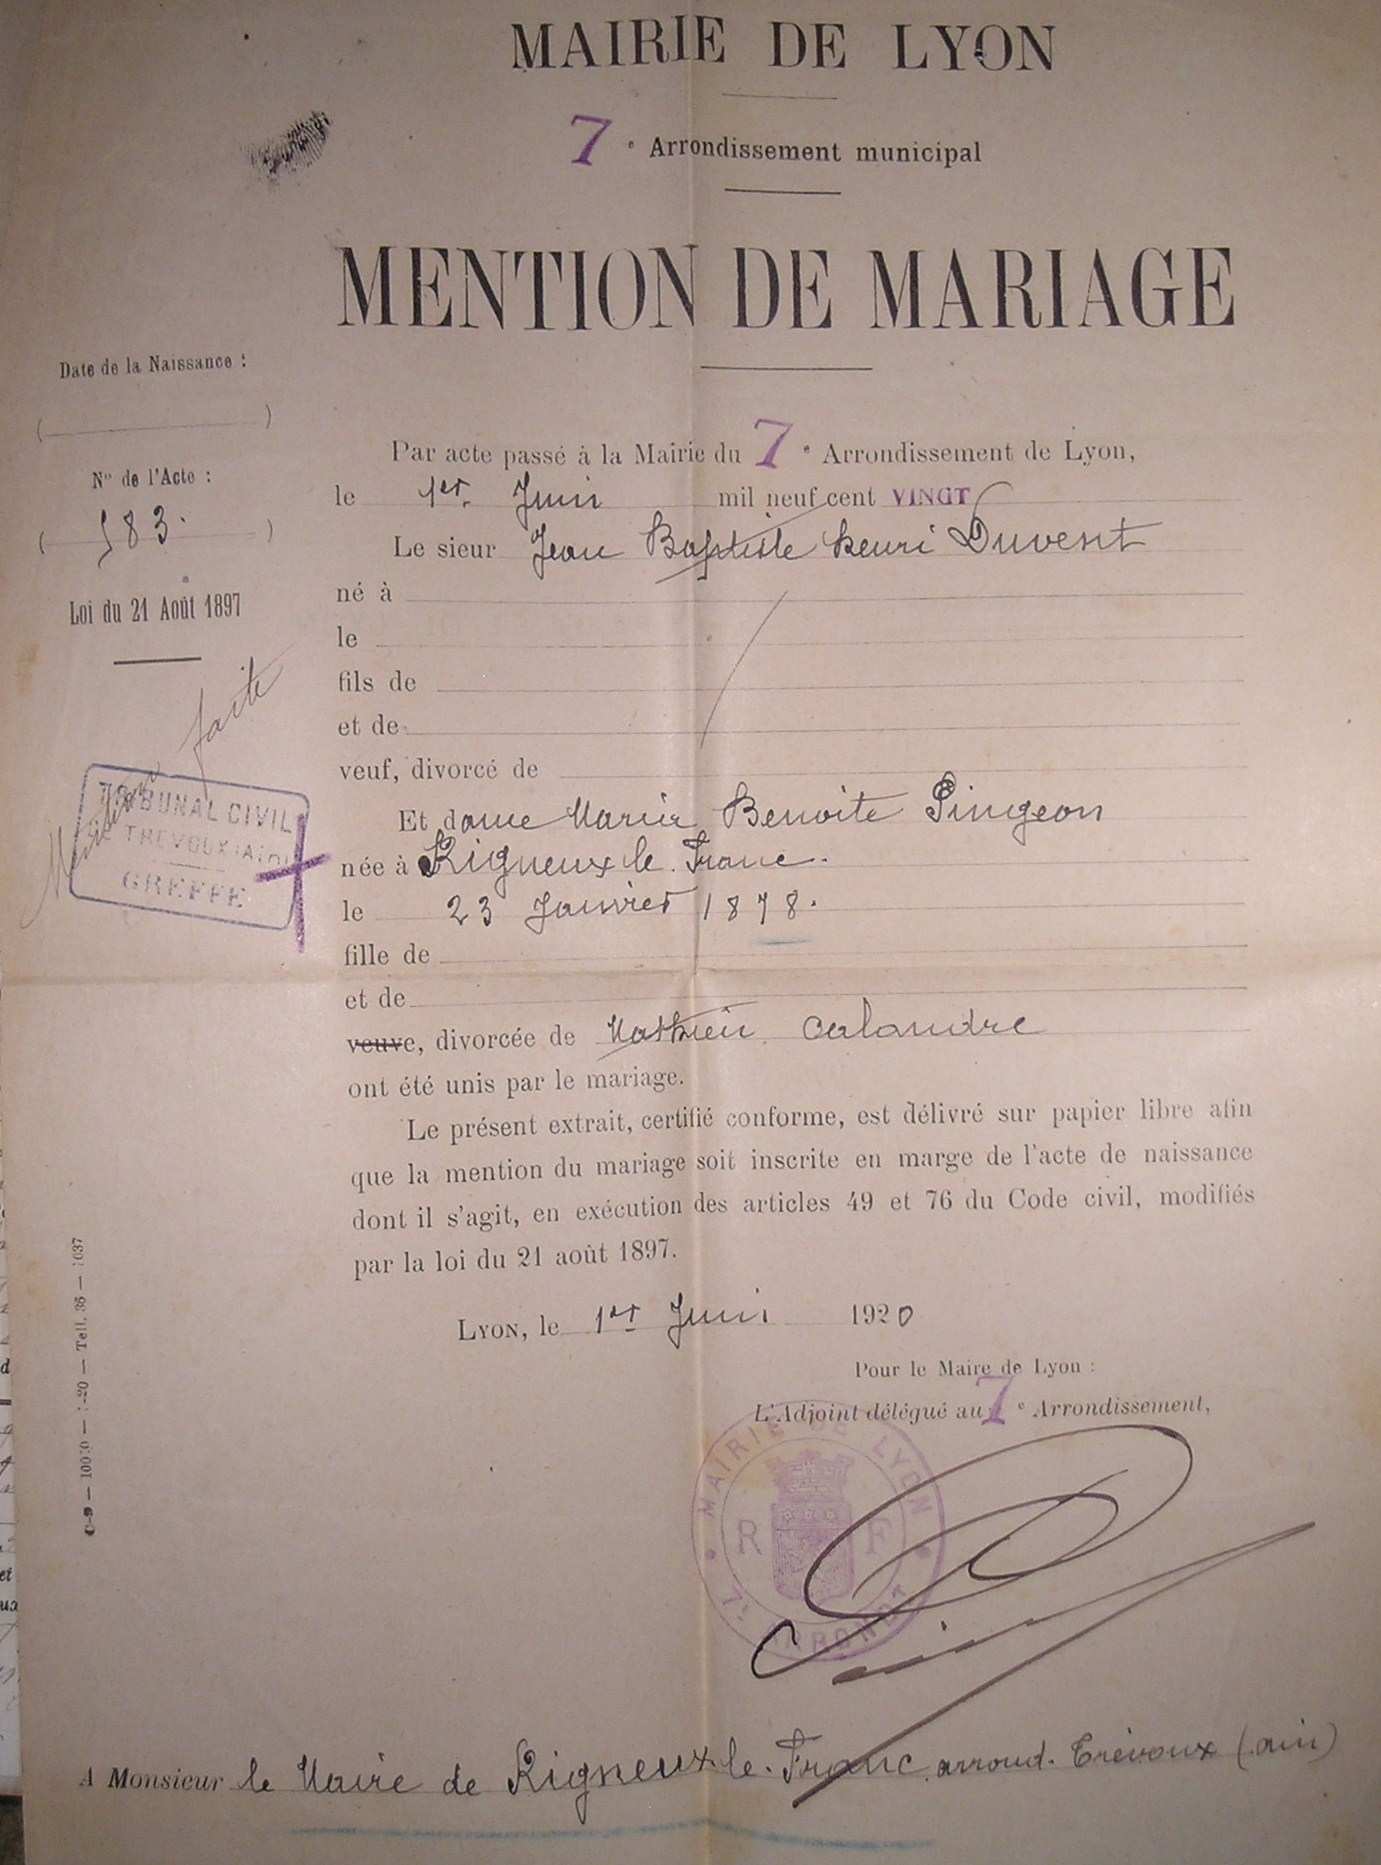 MAIRIE DE LYON
7e Arrondissement municipal
MENTION DE MARIAGE
Date de la Naissance :
( )
No de l'Acte :
( 583. )
Loi du 21 Août 1897
Mention faite
TRIBUNAL CIVIL
TREVOUX (AIN)
GREFFE
Par acte passé à la Mairie du 7e Arrondissement de Lyon,
le 1er Juin mil neuf cent VINGT
Le sieur Jean Baptiste henri Duvent
né à
le
fils de
et de
veuf, divorcé de
Et dame Marie Benoite Pingeon
née à Rigneux le. Franc.
le 23 Janvier 1878.
fille de
et de
veuve, divorcée de Mathieu Calandre
ont été unis par le mariage.
Le présent extrait, certifié conforme, est délivré sur papier libre afin
que la mention du mariage soit inscrite en marge de l'acte de naissance
dont il s'agit, en exécution des articles 49 et 76 du Code civil, modifiés
par la loi du 21 août 1897.
LYON, le 1er Juin 1920
Pour le Maire de Lyon :
L'Adjoint délégué au 7e Arrondissement,
MAIRIE DE LYON
R F
7e ARRONDT
A Monsieur le Maire de Rigneux le. Franc. arrond. Trévoux (ain)